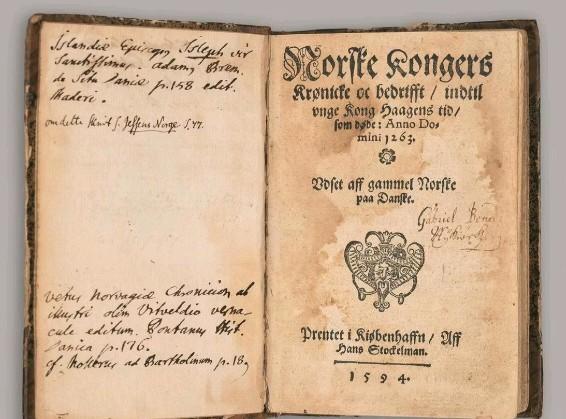 Islandiæ Episcopus Isleph vir
Sanctissimus. adam. Brem.
de Situ Daniæ p. 158 edit.
Maderi.
om dette skrift s. Jessens Norge S. 77.
vetus Norvagiæ Chronicion ab
illustri olim Vitveldio verna-
cule editum. Pontanus Hist.
Danica p. 176.
cf. Mollerus ad Bartholinum p. 18,
Norske Kongers
Krønicke oc bedrifft / indtil
vnge Kong Haagens tid /
som døde: Anno Do-
mini 1263.
Vdset aff gammel Norske
paa Danske.
Gabriel
Prentet i Kiøbenhaffn / Aff
Hans Stockelman.
1594.